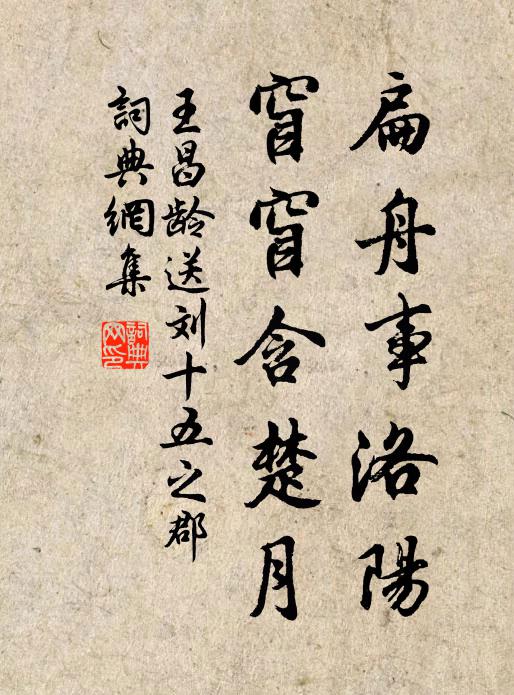 扁舟事洛陽
窅窅含楚月
王昌龄送刘十五之郡
詞典網集
詞典网印